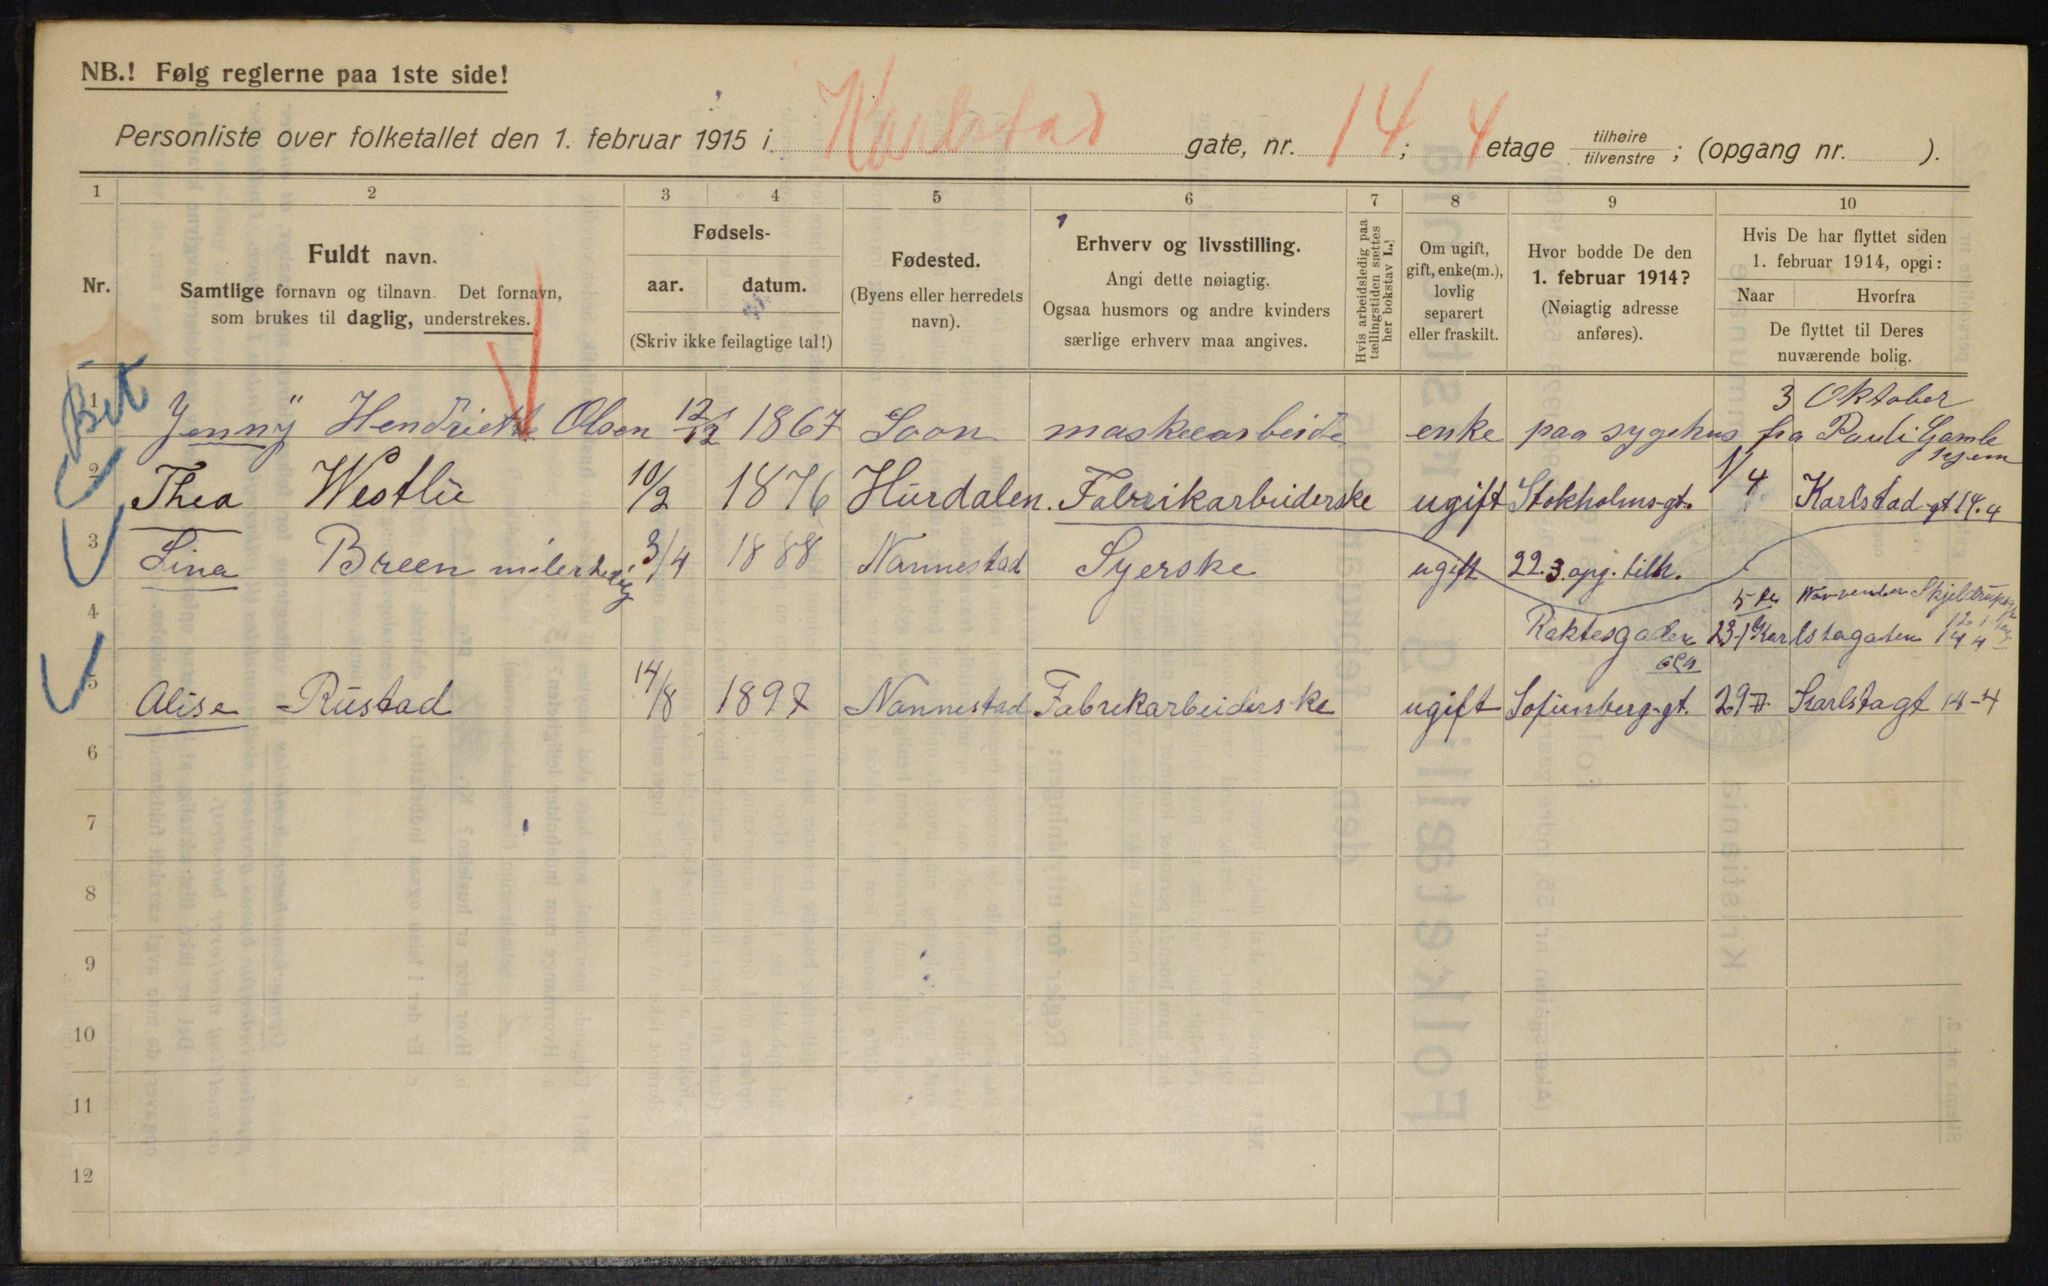 NB.! Følg reglerne paa 1ste side!
Personliste over folketallet den 1. februar 1915 i Karlstad gate, nr. 14; 4 etage tilhøire / tilvenstre; (opgang nr. ).
1 2 3 4 5 6 7 8 9 10
Nr.
Fuldt navn.
Samtlige fornavn og tilnavn. Det fornavn,
som brukes til daglig, understrekes.
Fødsels-
aar. datum.
(Skriv ikke feilagtige tal!)
Fødested.
(Byens eller herredets
navn).
Erhverv og livsstilling.
Angi dette nøiagtig.
Ogsaa husmors og andre kvinders
særlige erhverv maa angives.
Hvis arbeidsledig paa
tællingstiden sættes
her bokstav L.)
Om ugift,
gift, enke(m.),
lovlig
separert
eller fraskilt.
Hvor bodde De den
1. februar 1914?
(Nøiagtig adresse
anføres).
Hvis De har flyttet siden
1. februar 1914, opgi:
Naar Hvorfra
De flyttet til Deres
nuværende bolig.
Bet
3 Oktober
1 Jenny Hendriette Olsen 12/12 1867 Soon enke paa sygehus fra Pauli Gamle
hjem
2 Thea Westlie 10/2 1876 Hurdalen. Fabrikarbeiderske ugift Stokholms-gt. 1/4 Karlstad-gt 14.4
3 Lina Breen 3/4 1888 Nannestad Syerske ugift 22.3. opg. tilh.
4 23-1 Karlstagaten
5 Alise Rustad 14/8 1897 Nannestad Fabrekarbeiderske ugift Sofienberg-gt. 29 Karlstagt 14-4
6
7
8
9
10
11
12